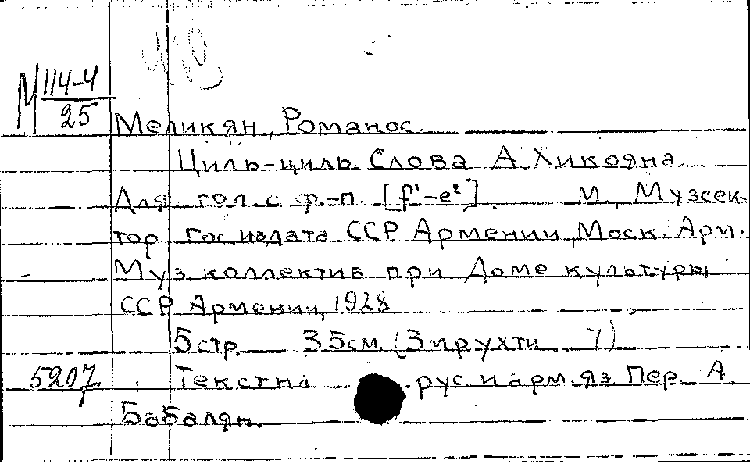 М 114-4
25
Меликян, Романос.
Циль-циль. Слова А. Хикояна.
Для гол. с ф.-п. [f¹-e²]. М., Музсек-
тор Госиздата ССР Армении, Моск. Арм.
Муз. коллектив при Доме культуры
ССР Армении, 1928
5 стр. 35 см. (Змрухти 7)
5207 Текст на рус. и арм. яз. Пер. А.
Бабалян.